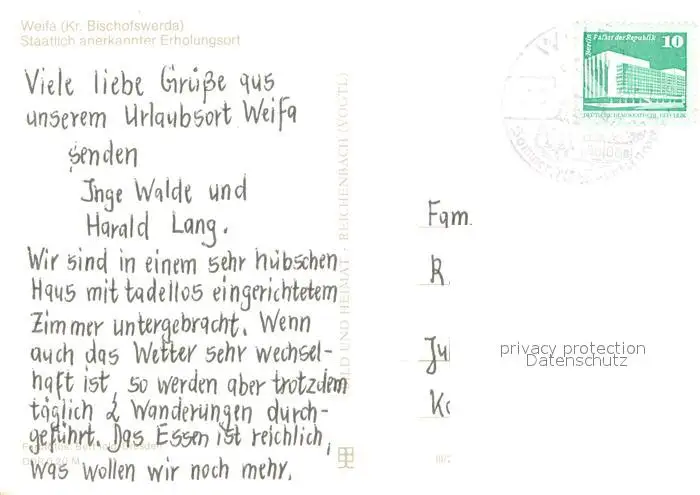 Weifa (Kr. Bischofswerda)
Staatlich anerkannter Erholungsort
Viele liebe Grüße aus
unserem Urlaubsort Weifa
senden
Inge Walde und
Harald Lang.
Wir sind in einem sehr hübschen
Haus mit tadellos eingerichtetem
Zimmer untergebracht. Wenn
auch das Wetter sehr wechsel-
haft ist, so werden aber trotzdem
täglich 2 Wanderungen durch-
geführt. Das Essen ist reichlich,
was wollen wir noch mehr.
BILD UND HEIMAT · REICHENBACH (VOGTL)
Berlin Palast der Republik 10
Fam.
R
Ju
Ko
privacy protection
Datenschutz